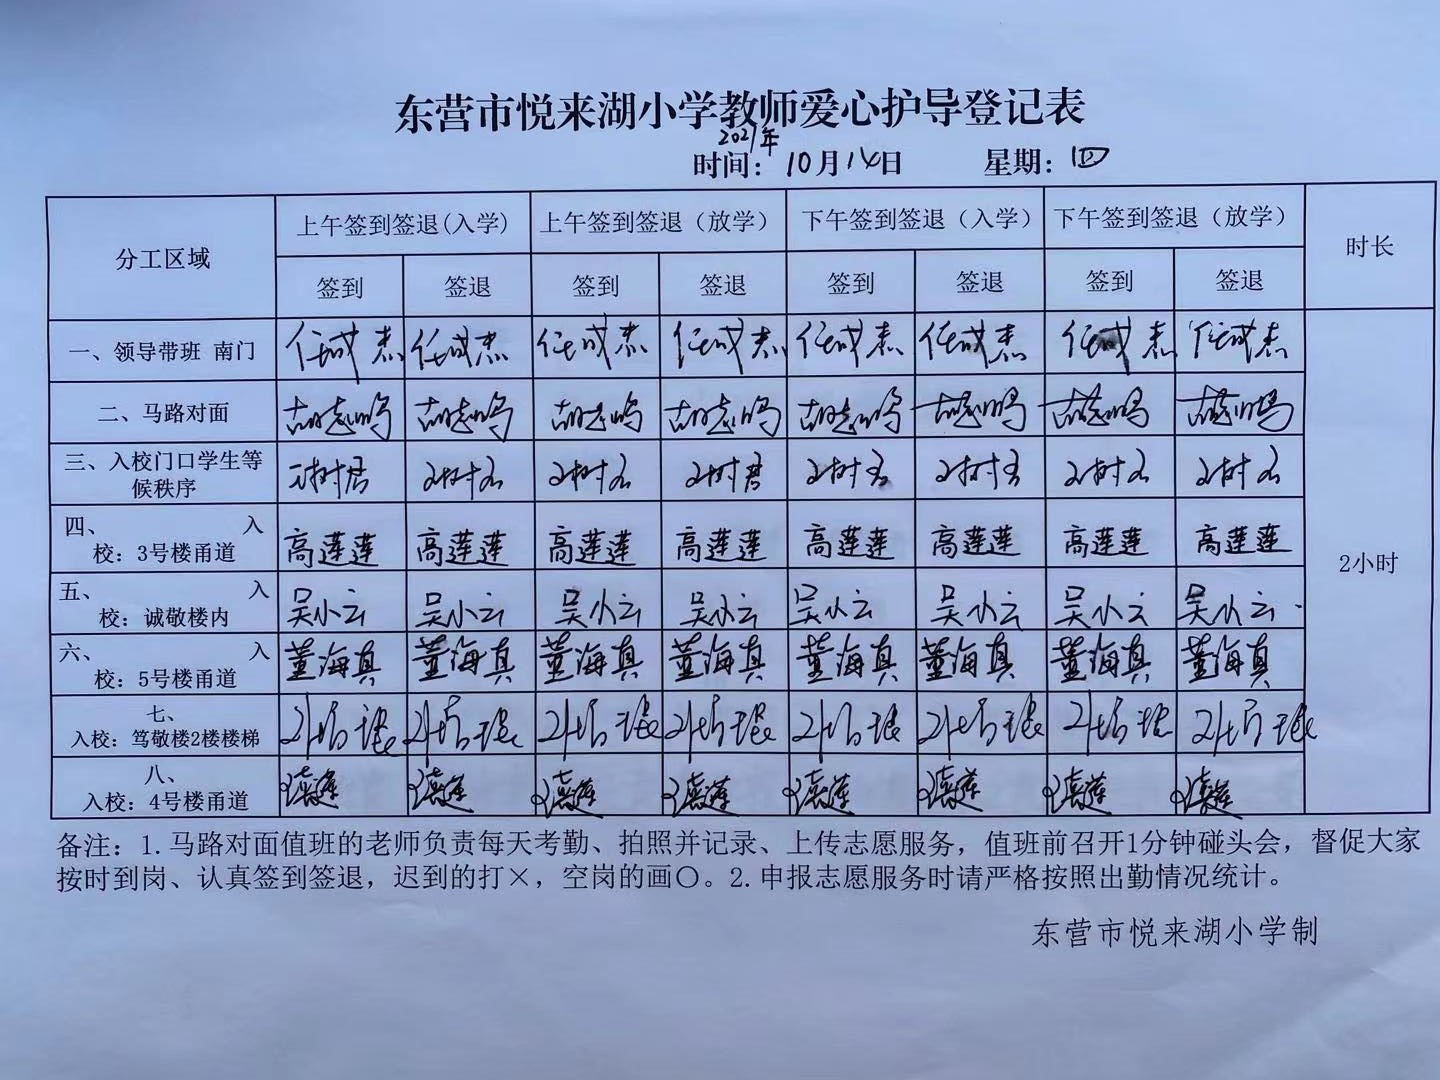 东营市悦来湖小学教师爱心护导登记表
2021年
时间：10月14日 星期：四
分工区域 上午签到签退(入学) 上午签到签退（放学） 下午签到签退（入学） 下午签到签退（放学） 时长
签到 签退 签到 签退 签到 签退 签到 签退
一、领导带班 南门 任成杰 任成杰 任成杰 任成杰 任成杰 任成杰 任成杰 任成杰
二、马路对面 胡志鸣 胡志鸣 胡志鸣 胡志鸣 胡志鸣 胡志鸣 胡志鸣 胡志鸣
三、入校门口学生等
候秩序
四、 入
校：3号楼甬道 高莲莲 高莲莲 高莲莲 高莲莲 高莲莲 高莲莲 高莲莲 高莲莲
2小时
五、 入
校：诚敬楼内 吴小云 吴小云 吴小云 吴小云 吴小云 吴小云 吴小云 吴小云
六、 入
校：5号楼甬道 董海真 董海真 董海真 董海真 董海真 董海真 董海真 董海真
七、
入校：笃敬楼2楼楼梯
八、
入校：4号楼甬道
备注：1.马路对面值班的老师负责每天考勤、拍照并记录、上传志愿服务，值班前召开1分钟碰头会，督促大家
按时到岗、认真签到签退，迟到的打×，空岗的画〇。2.申报志愿服务时请严格按照出勤情况统计。
东营市悦来湖小学制